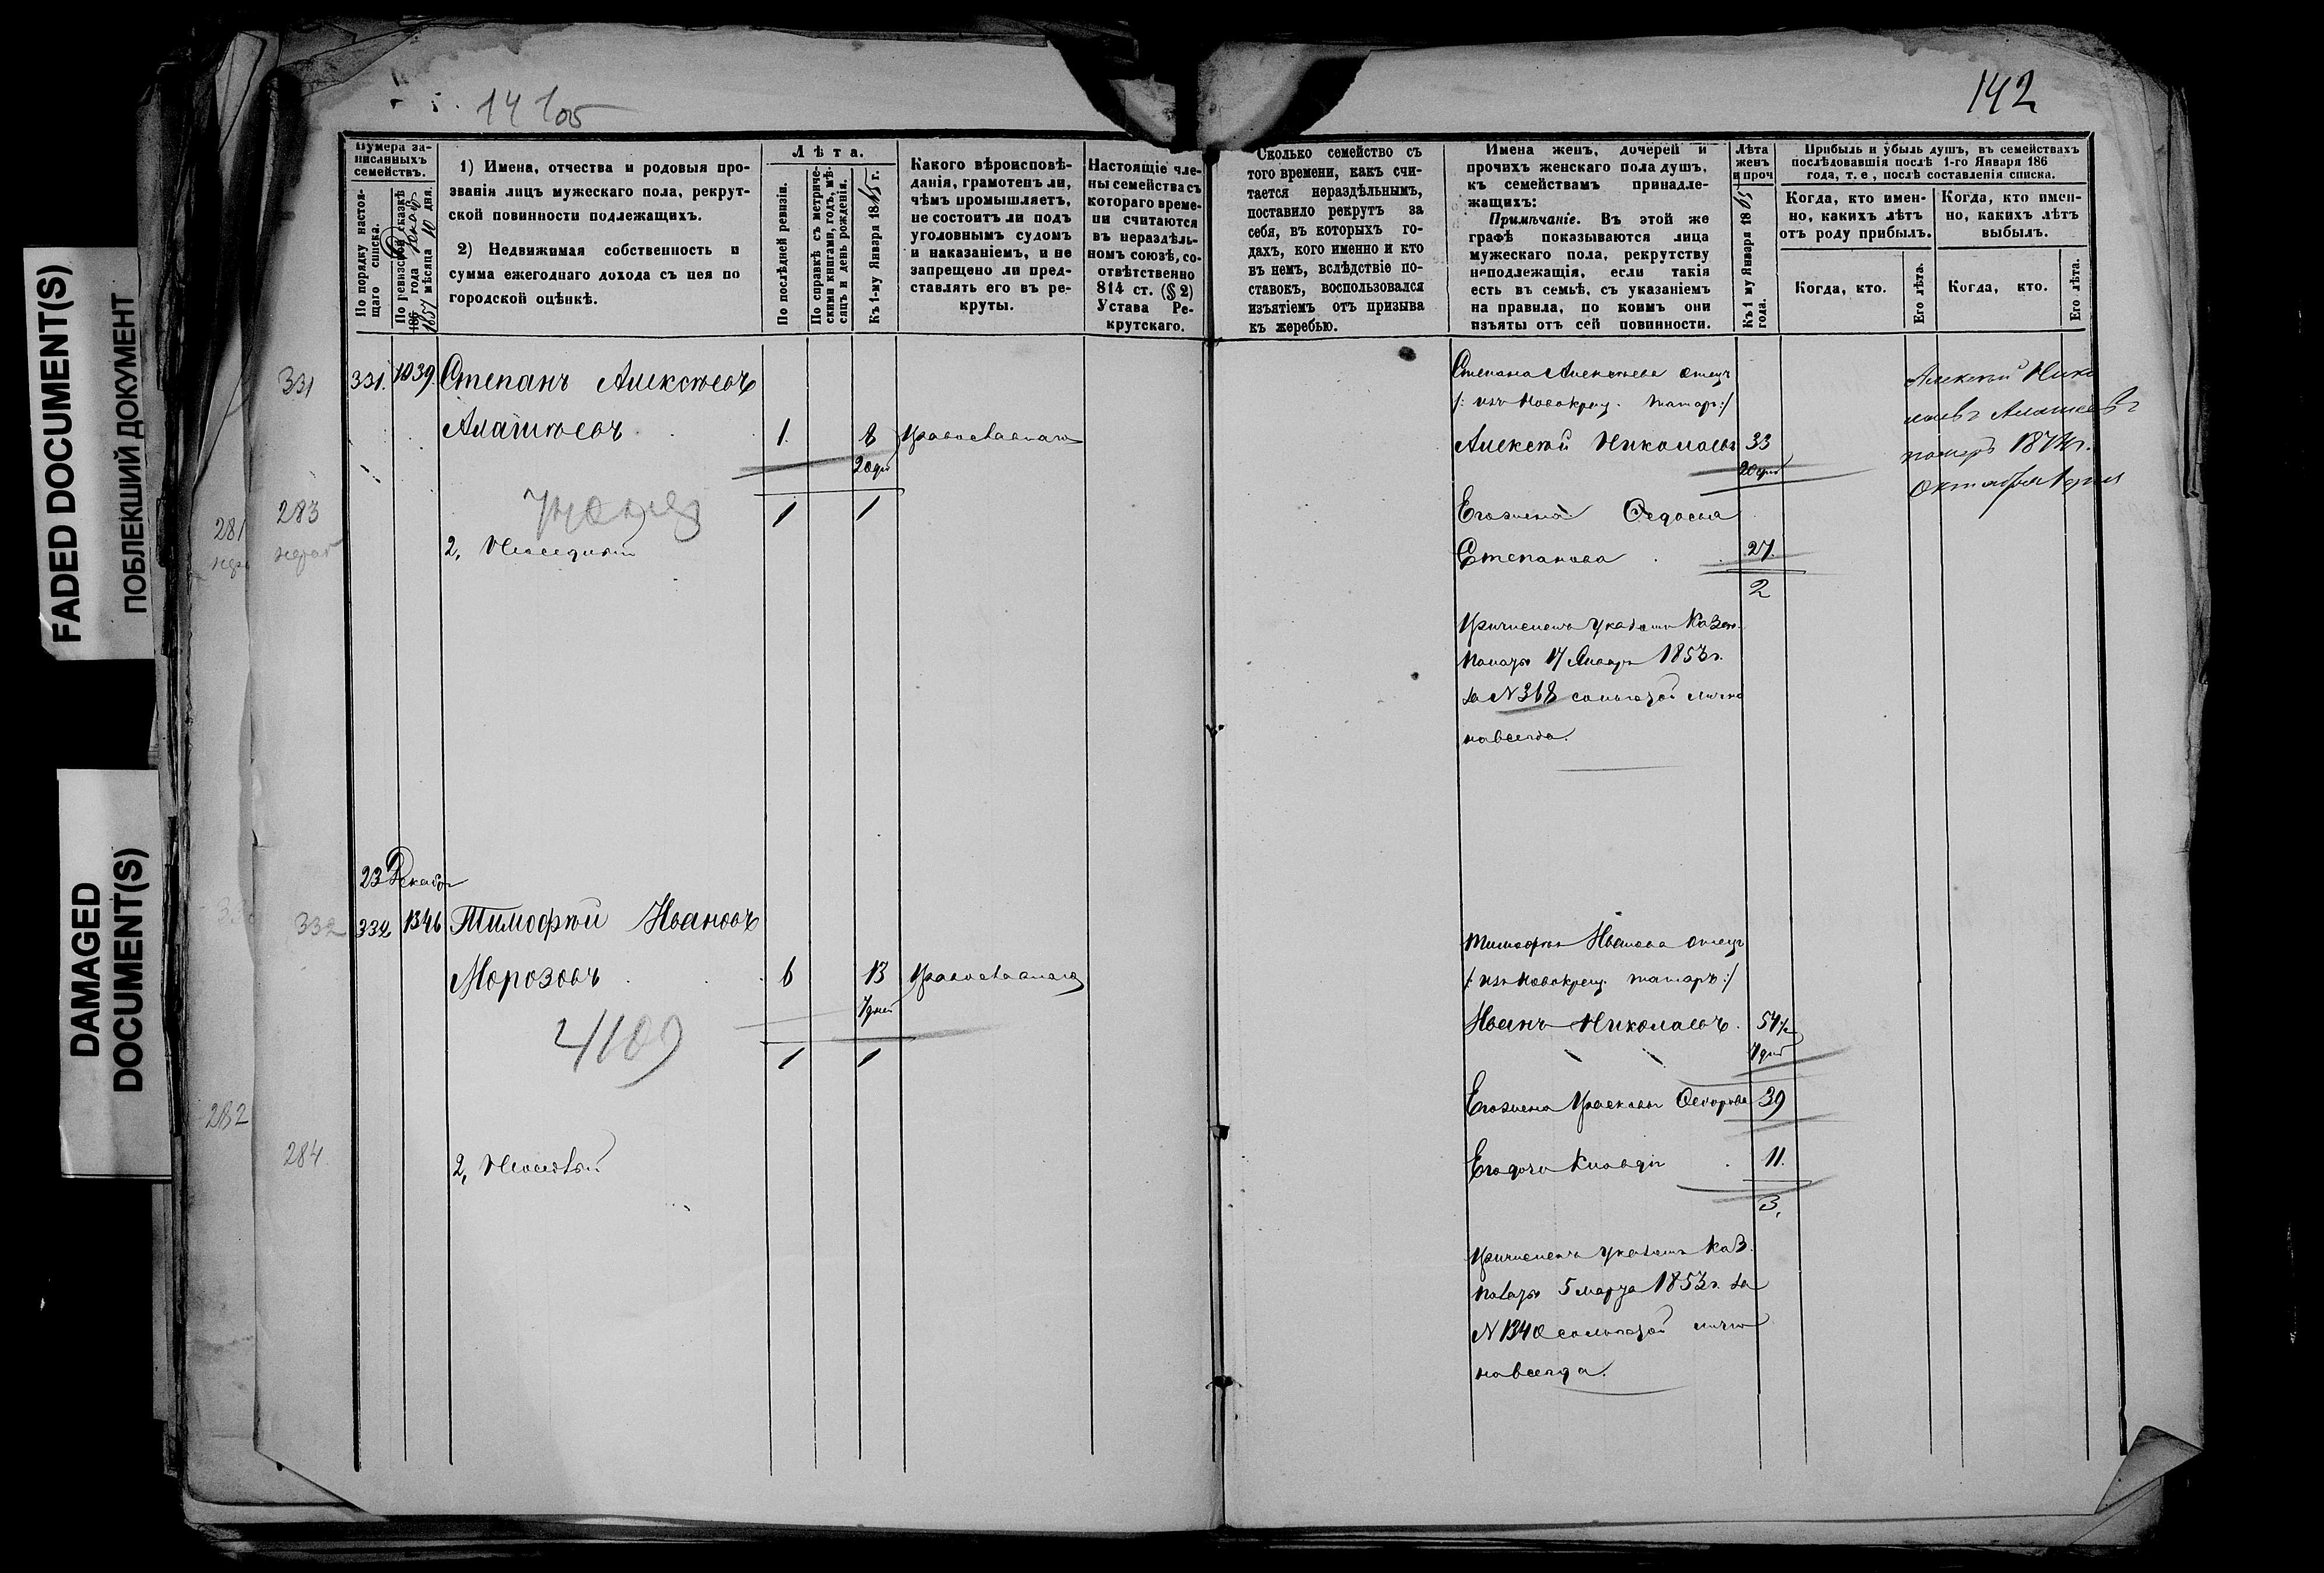 FADED DOCUMENT(S)
ПОБЛЕКШИЙ ДОКУМЕНТ
DAMAGED
DOCUMENT(S)
142
Нумера за-
писанныхъ
семействъ.
По порядку настоя-
щаго списка.
По ревизской сказкѣ
186 года
1857 мѣсяца 10 дня.
1) Имена, отчества и родовыя про-
званія лицъ мужескаго пола, рекрут-
ской повинности подлежащихъ.
2) Недвижимая собственность и
сумма ежегоднаго дохода съ нея по
городской оцѣнкѣ.
Лѣта.
По послѣдней ревизіи.
По справкѣ съ метриче-
скими книгами, годъ, мѣ-
сяцъ и день рожденія.
Къ 1-му Января 1865 г.
Какого вѣроисповѣ-
данія, грамотенъ ли,
чѣмъ промышляетъ,
не состоитъ ли подъ
уголовнымъ судомъ
и наказаніемъ, и не
запрещено ли пред-
ставлять его въ ре-
круты.
Настоящіе чле-
ны семейства съ
котораго време-
ни считаются
въ нераздѣль-
номъ союзѣ, со-
отвѣтственно
814 ст. (§ 2)
Устава Ре-
крутскаго.
Сколько семейство съ
того времени, какъ счи-
тается нераздѣльнымъ,
поставило рекрутъ за
себя, въ которыхъ го-
дахъ, кого именно и кто
въ немъ, вслѣдствіе по-
ставокъ, воспользовался
изъятіемъ отъ призыва
къ жеребью.
Имена женъ, дочерей и
прочихъ женскаго пола душъ,
къ семействамъ принадле-
жащихъ:
Примѣчаніе. Въ этой же
графѣ показываются лица
мужескаго пола, рекрутству
неподлежащія, если такія
есть въ семьѣ, съ указаніемъ
на правила, по коимъ они
изъяты отъ сей повинности.
Лѣта
женъ
и проч
Къ 1 му Января 1865
года.
Прибыль и убыль душъ, въ семействахъ
послѣдовавшія послѣ 1-го Января 186
года, т. е, послѣ составленія списка.
Когда, кто имен-
но, какихъ лѣтъ
отъ роду прибылъ.
Когда, кто имен-
но, какихъ лѣтъ
выбылъ.
Когда, кто.
Его лѣта.
Когда, кто.
Его лѣта.
331
331. 1039. Степанъ Алексѣевъ
Алашѣевъ 1. 8 Православнаго
20 дн
1 1
281
283
2,
Степана Алексѣева отецъ
/: изъ Новокрещ. татаръ :/
Алексѣй Николаевъ 33
20 дней
Его жена Ѳедосья
Степанова 27.
2
Причисленъ указомъ Казен.
Палаты 17 Январ 1853 г.
за № 368 со льготой лично
навсегда.
Алексѣй Нико
лаевъ Алашеевъ
померъ 187 г.
Октября 1 дня
23 Декабр
332
332 1346 Тимофѣй Ивановъ
Морозовъ 6 13 Православнаго
7 дней
4109
1 1
282
284
2,
Тимофѣя Иванова отецъ
/: изъ Новокрещ. татаръ :/
Иванъ Николаевъ. 54
7 дней
Его жена Прасковья Ѳедорова 39
Его дочь Клавдія 11.
3.
Причисленъ указомъ Каз.
Палаты 5 марта 1853 г. за
№ 1340 со льготой лично
навсегда.